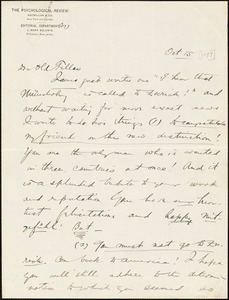 THE PSYCHOLOGICAL REVIEW
MACMILLAN & CO.
EDITORIAL DEPARTMENT
J. MARK BALDWIN
Oct 15
Dear Old Fellow
James just writes me "I hear that
Münsterberg is called to Zurich!" and
without waiting for more exact news
I write to do two things (1) To congratulate
my friend on this new distinction!
You are the only one who's wanted
in three countries at once! And it
is a splendid tribute to your work
and reputation. You have my heartiest
felicitations and happy Mitgefühl!
But—
(2) You must not go to Zurich.
Come back to America! I hope
you will still adhere to the determination
to which you seemed so